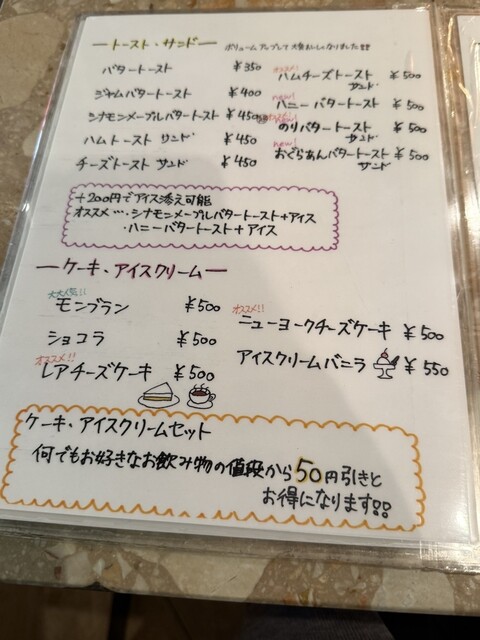 ートースト・サンドー ボリュームアップして大変おいしくなりました!!
バタートースト ¥350
ジャムバタートースト ¥400
シナモンメープルバタートースト ¥450
ハムトースト サンド ¥450
チーズトースト サンド ¥450
オススメ!
ハムチーズトースト サンド ¥500
new!
ハニーバタートースト ¥500
new!
のりバタートースト サンド ¥500
new!
おぐらあんバタートースト サンド ¥500
+200円でアイス添え可能
オススメ…・シナモンメープルバタートースト+アイス
・ハニーバタートースト+アイス
ーケーキ、アイスクリームー
大人気!!
モンブラン ¥500
ショコラ ¥500
オススメ!!
レアチーズケーキ ¥500
オススメ!!
ニューヨークチーズケーキ ¥500
アイスクリームバニラ ¥550
ケーキ、アイスクリームセット
何でもお好きなお飲み物の値段から50円引きと
お得になります!!